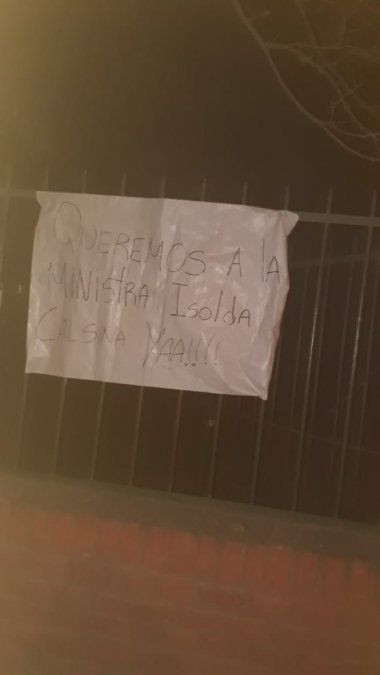 QUEREMOS A la
MINISTRA Isolda
CALSINA YAA!!!!